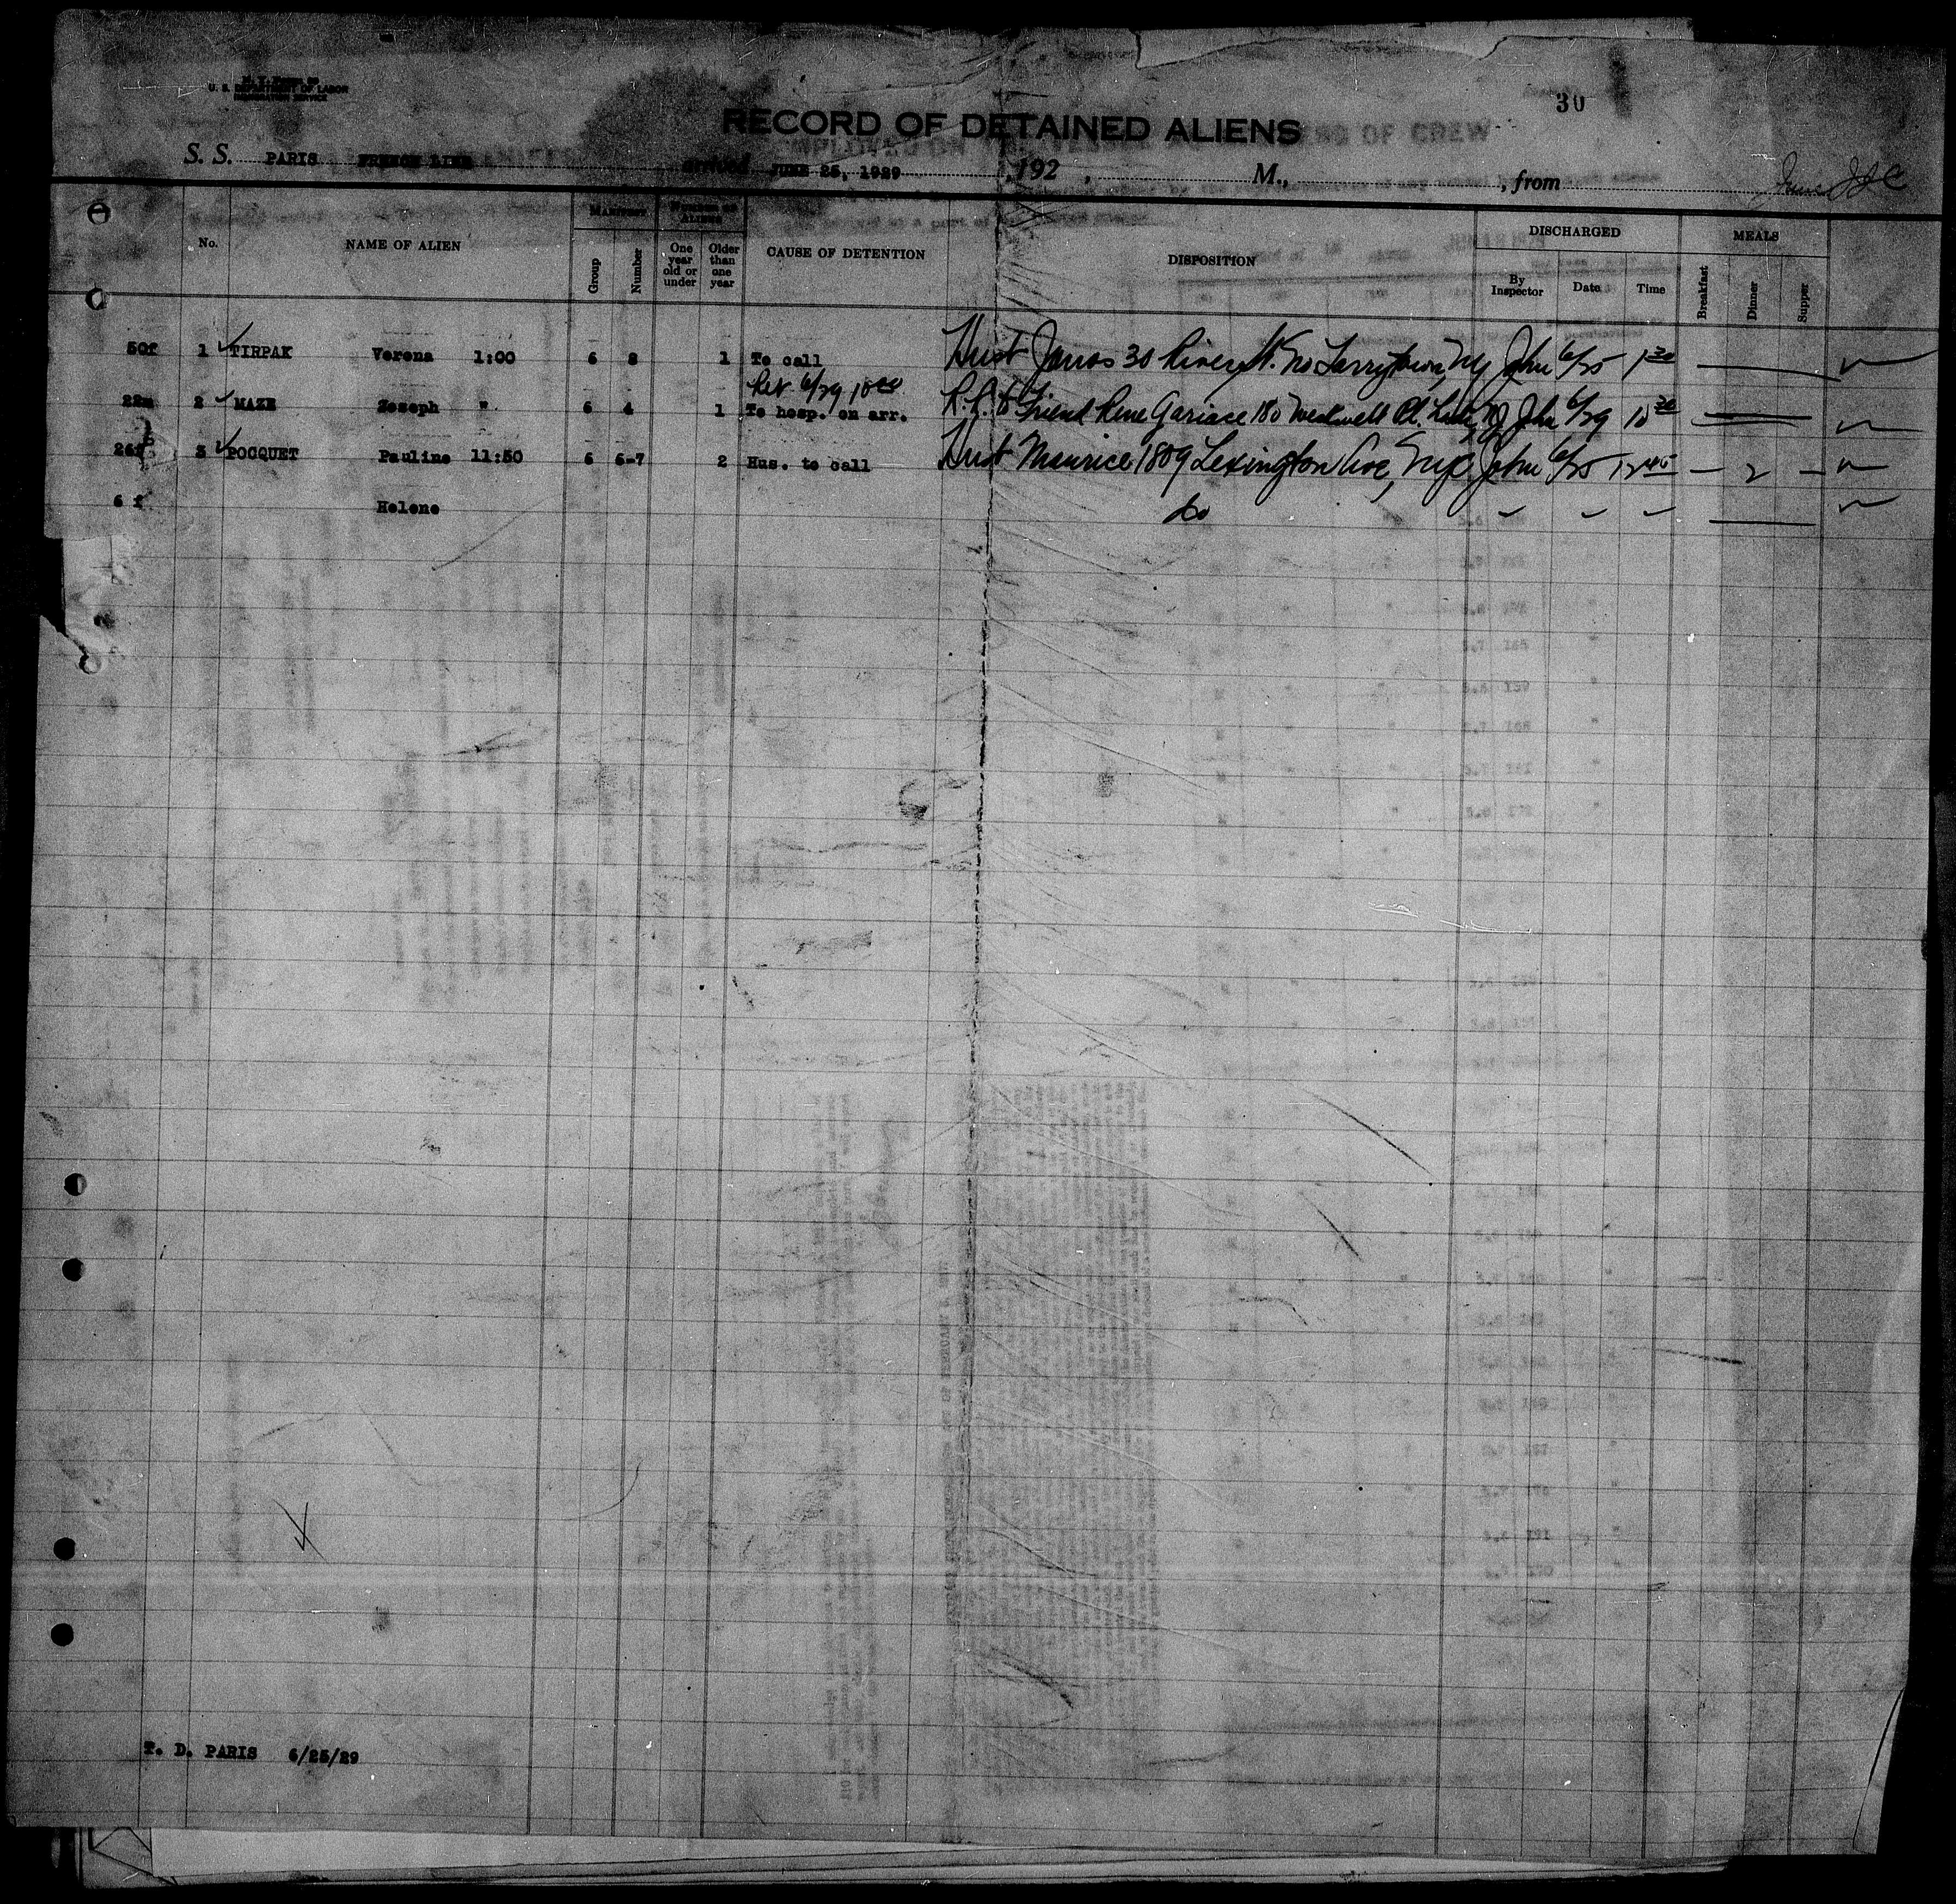 U. S. DEPARTMENT OF LABOR
IMMIGRATION SERVICE
30
RECORD OF DETAINED ALIENS
S. S. PARIS FRENCH LINE arrived JUNE 25, 1929 , 192 , M., , from
No. NAME OF ALIEN MANIFEST Group Number NUMBER OF ALIENS One year old or under Older than one year CAUSE OF DETENTION DISPOSITION DISCHARGED By Inspector Date Time MEALS Breakfast Dinner Supper
50f 1 TIRPAK Verona 1:00 6 8 1 To call Hust 30 River St. No Tarrytown, NY John 6/25 1 30
6/29 10 00
22m 2 MAZE Joseph " 6 4 1 To hosp. on arr. Friend Rene 180 Pl. John 6/29 10 30
26f 3 POCQUET Pauline 11:50 6 6-7 2 Hus. to call Hust Maurice 1809 Lexington Ave, NYC John 6/25 12 45 – 2 –
6 f Helene do
T. D. PARIS 6/25/29